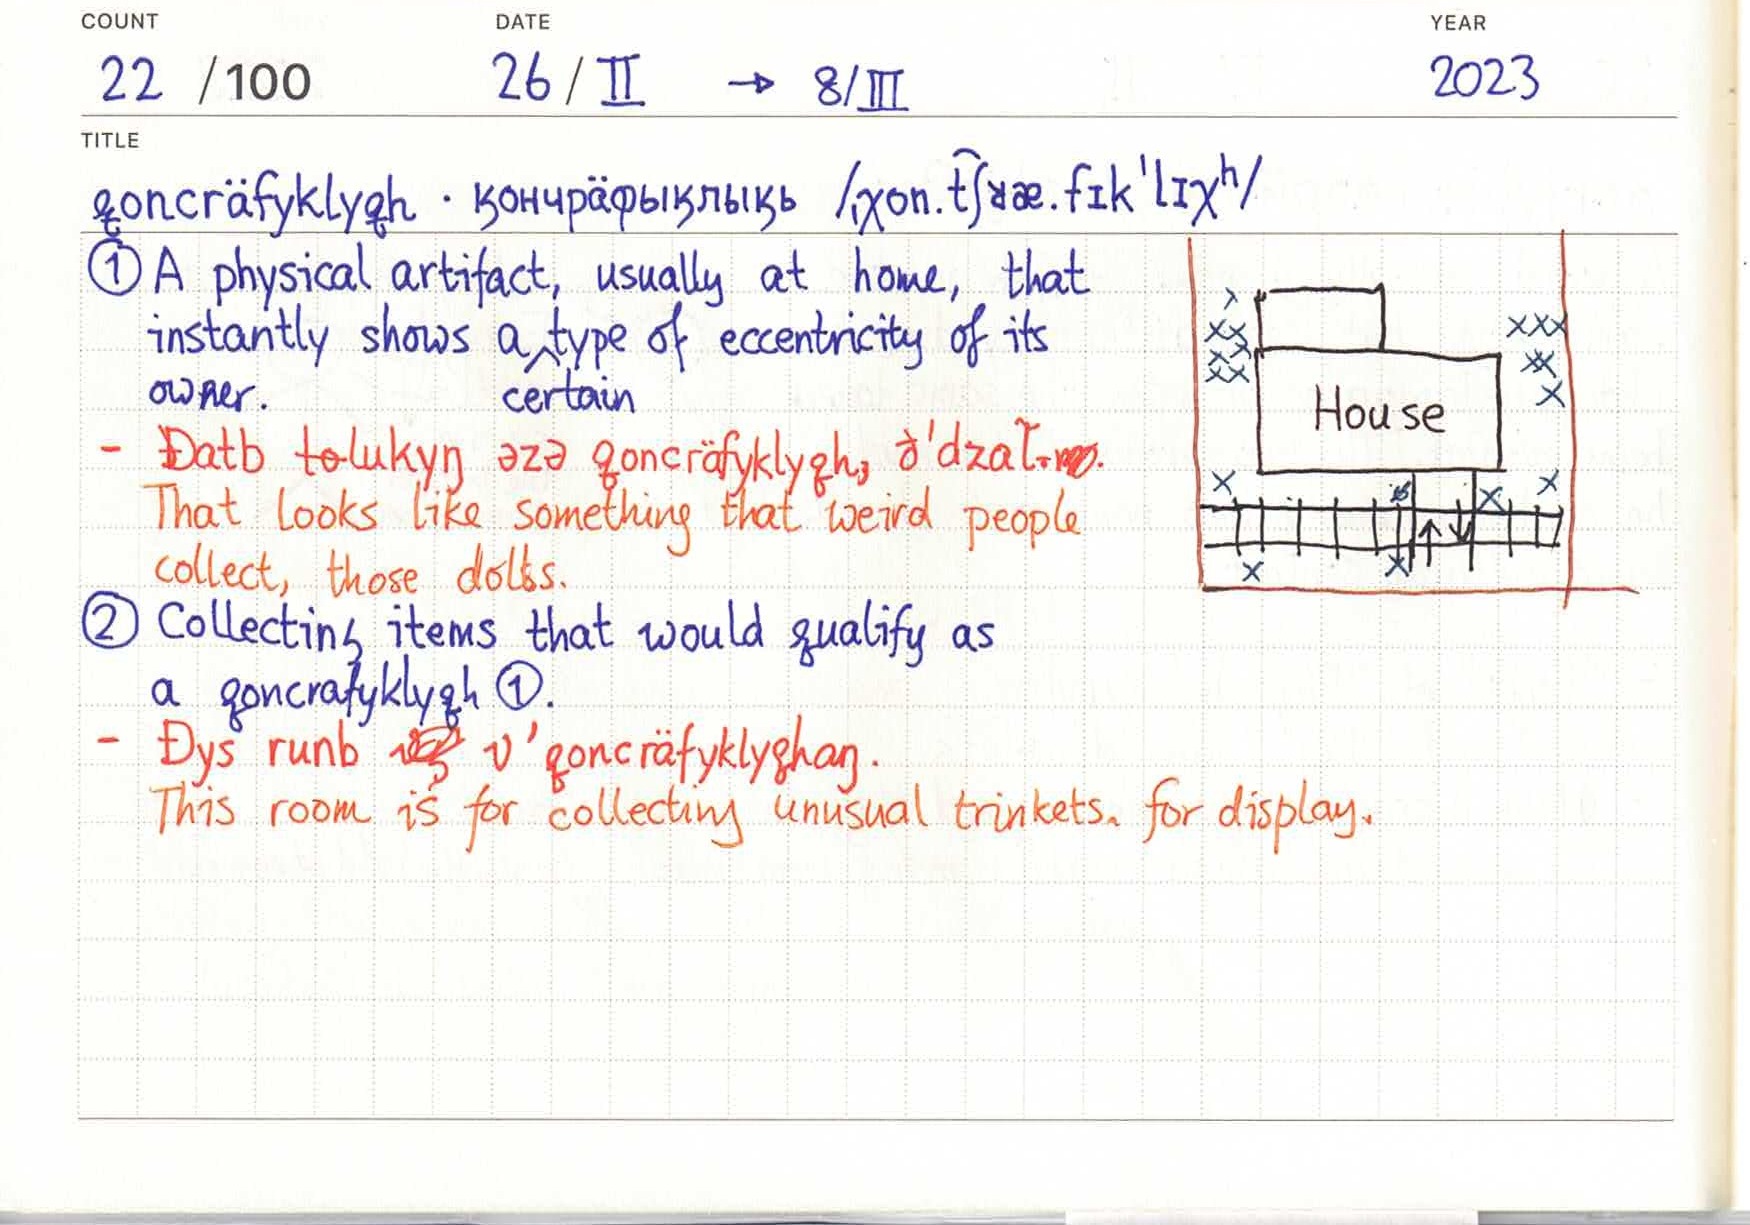 COUNT DATE YEAR
22 /100 26/II → 8/III 2023
TITLE
qoncräfyklyqh · қончрäфыкლықь /ˌχon.t͡ʃʁæ.fɪkˈlɪχʰ/
① A physical artifact, usually at home, that
instantly shows a certain type of eccentricity of its
owner.
- Đatb tolukyŋ əzə qoncräfyklyqh,
That looks like something that weird people
collect, those dolts.
② Collecting items that would qualify as
a qoncrafyklyqh ①.
- Đys runb v'qoncräfyklyqhaŋ.
This room is for collecting unusual trinkets. for display.
House